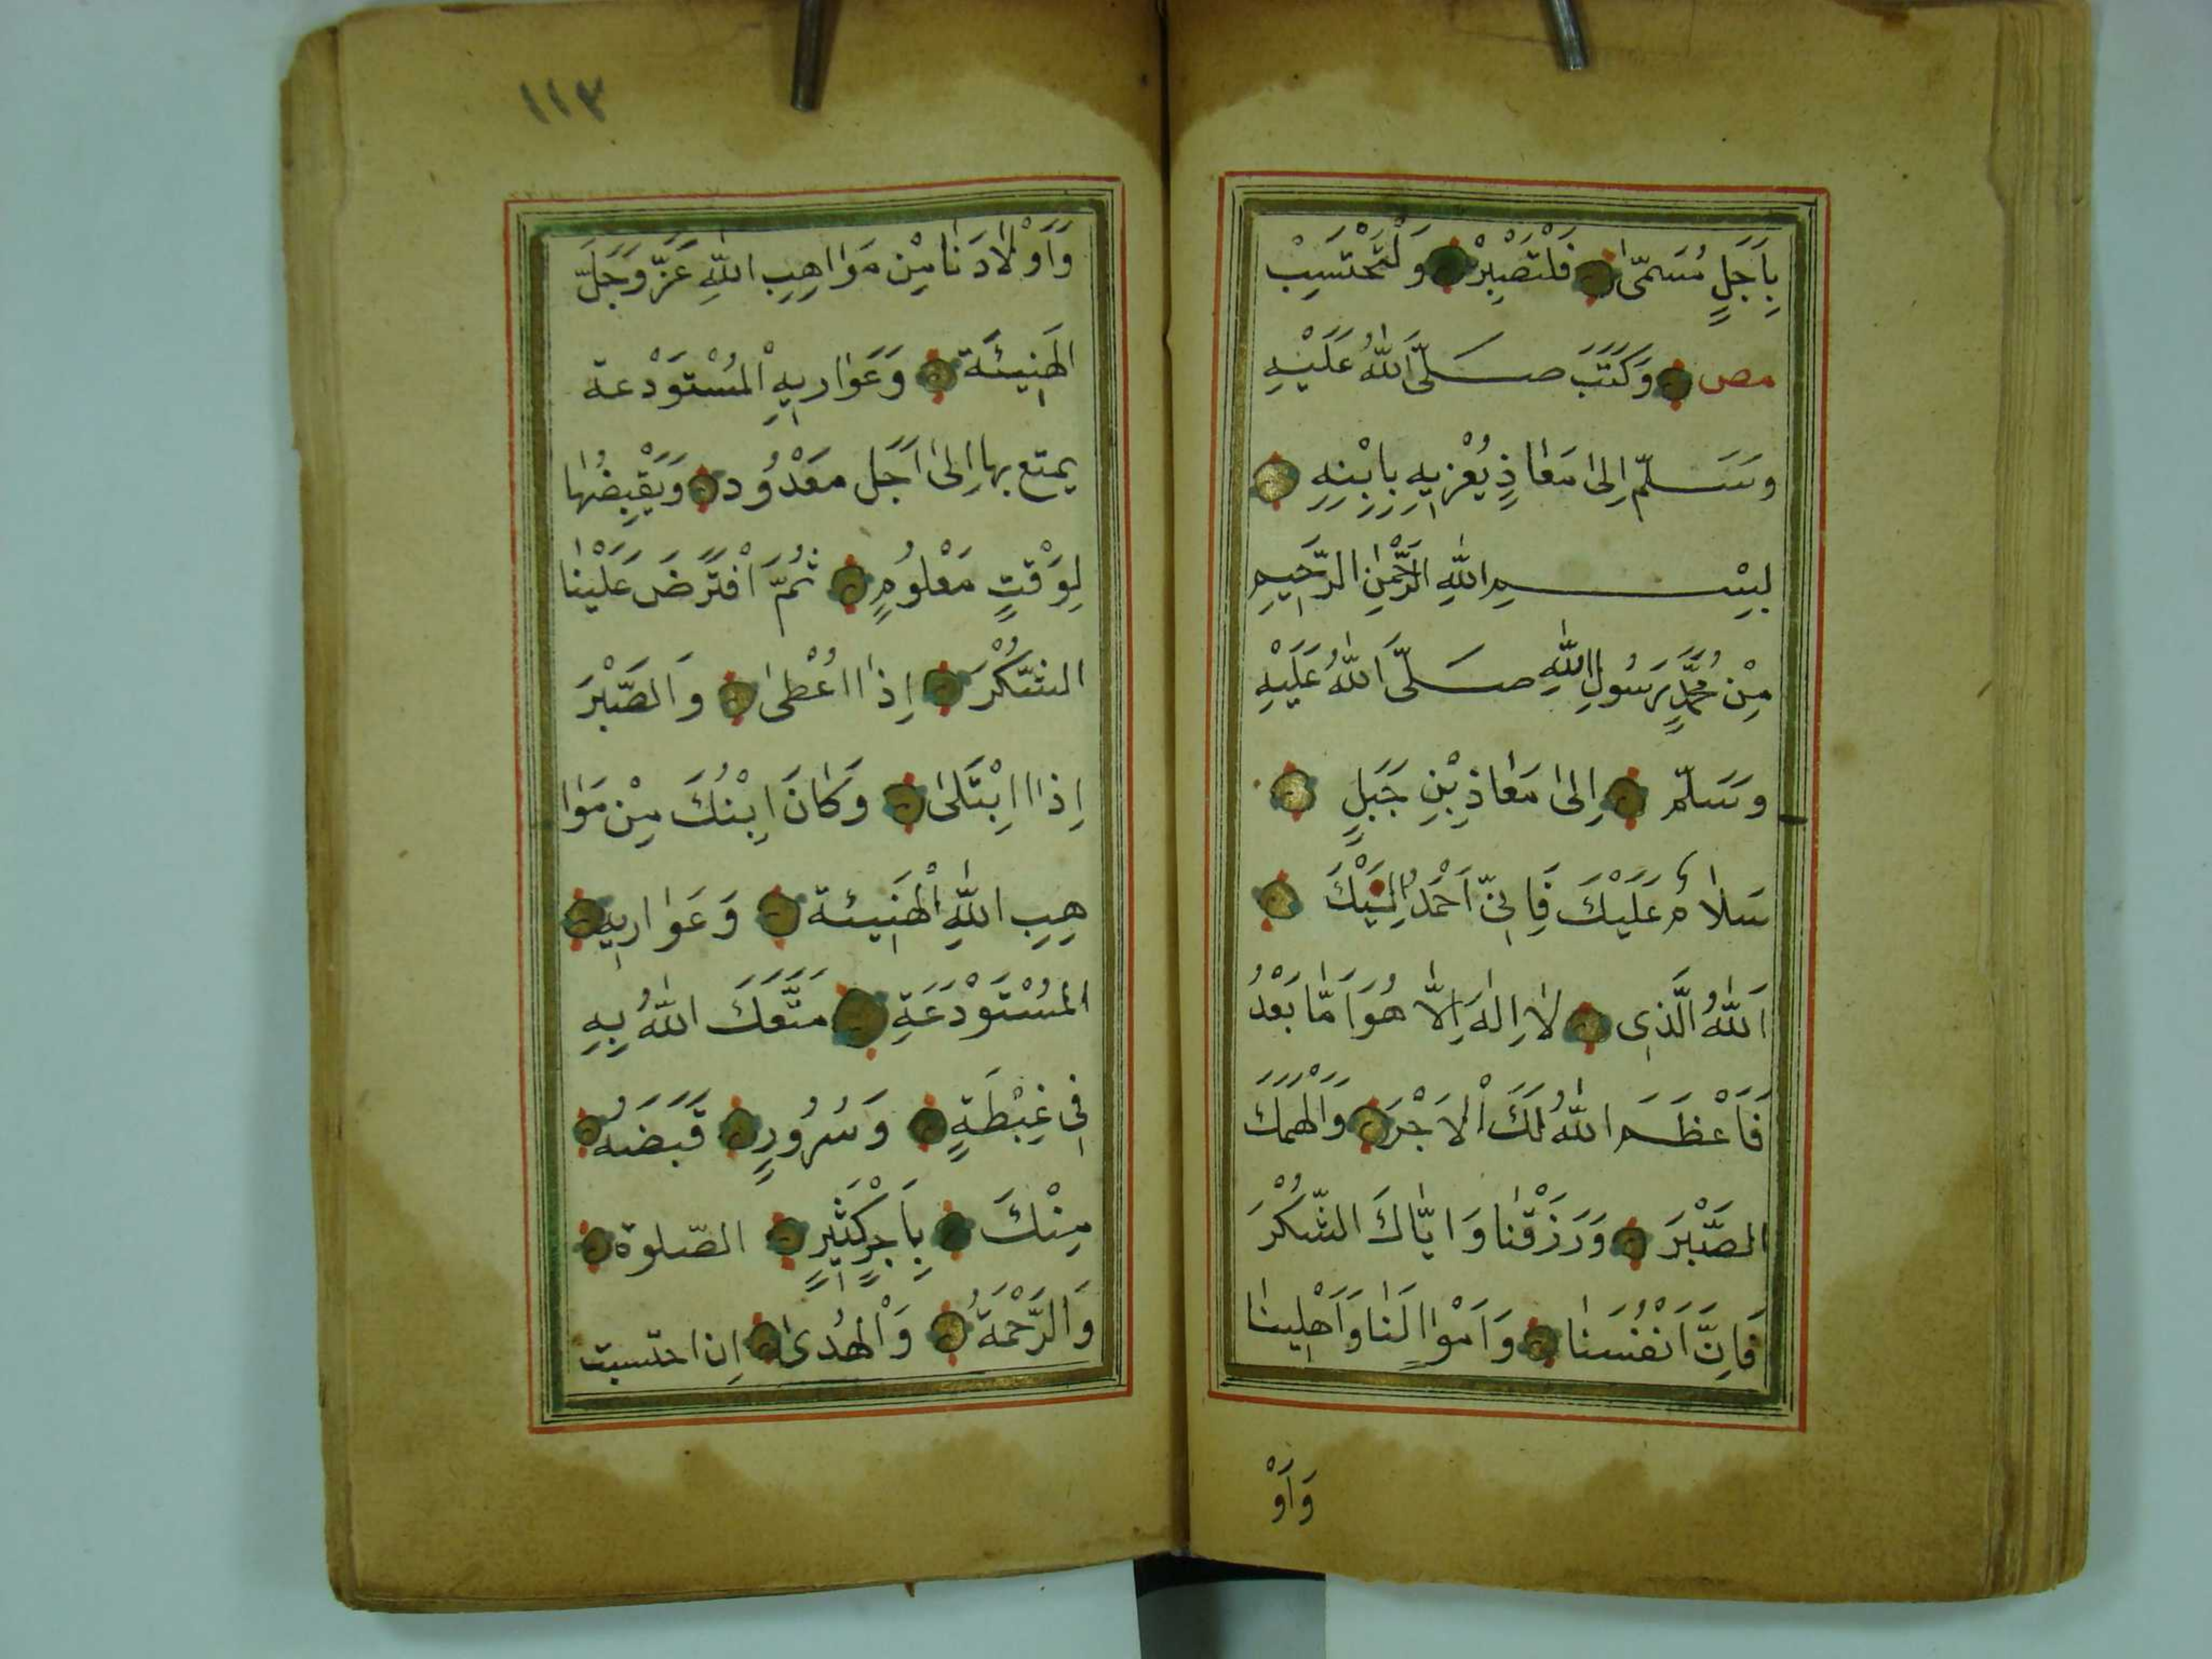 بِاَجَلٍ مُسَمّىٰ فَلْتَصْبِرْ وَلْتَحْتَسِبْ
مص وَكَتَبَ صَلَّى اللّٰهُ عَلَيْهِ
وَسَلَّمَ اِلىٰ مَعَاذٍ يُعْزِيهِ بِابْنِهِ
بِسْمِ اللّٰهِ الرَّحْمٰنِ الرَّحِيمِ
مِنْ مُحَمَّدٍ رَسُولِ اللّٰهِ صَلَّى اللّٰهُ عَلَيْهِ
وَسَلَّمَ اِلىٰ مَعَاذِ بْنِ جَبَلٍ
سَلَامٌ عَلَيْكَ فَاِنّى اَحْمَدُ اِلَيْكَ
اَللّٰهُ الَّذِى لَا اِلٰهَ اِلَّا هُوَ اَمَّا بَعْدُ
فَاَعْظَمَ اللّٰهُ لَكَ الْاَجْرَ وَاَلْهَمَكَ
الصَّبْرَ وَرَزَقْنَا وَاِيَّاكَ الشُّكْرَ
فَاِنَّ اَنْفُسَنَا وَاَمْوَالَنَا وَاَهْلِينَا
وَاَوْ
١١٣
وَاَوْلَادَنَا مِنْ مَوَاهِبِ اللّٰهِ عَزَّ وَجَلَّ
الْهَنِيئَة وَعَوَارِيهِ الْمُسْتَوْدَعة
يمتع بها اِلىٰ اَجَل مَعْدُود وَيَقْبِضُهَا
لِوَقْتٍ مَعْلُومٍ ثُمَّ افْتَرَضَ عَلَيْنَا
الشُّكْرَ اِذَا اَعْطىٰ وَالصَّبْرَ
اِذَا ابْتَلىٰ وَكَانَ ابْنُكَ مِنْ مَوَا
هِبِ اللّٰهِ الْهَنِيئة وَعَوَارِيهِ
الْمُسْتَوْدَعَةِ مَتَّعَكَ اللّٰهُ بِهِ
فِى غِبْطَةٍ وَسُرُورٍ قَبَضَهُ
مِنْكَ بِاَجْرٍ كَثِيرٍ الصّلوة
وَالرَّحْمَةُ وَالْهُدىٰ اِن احتسبت